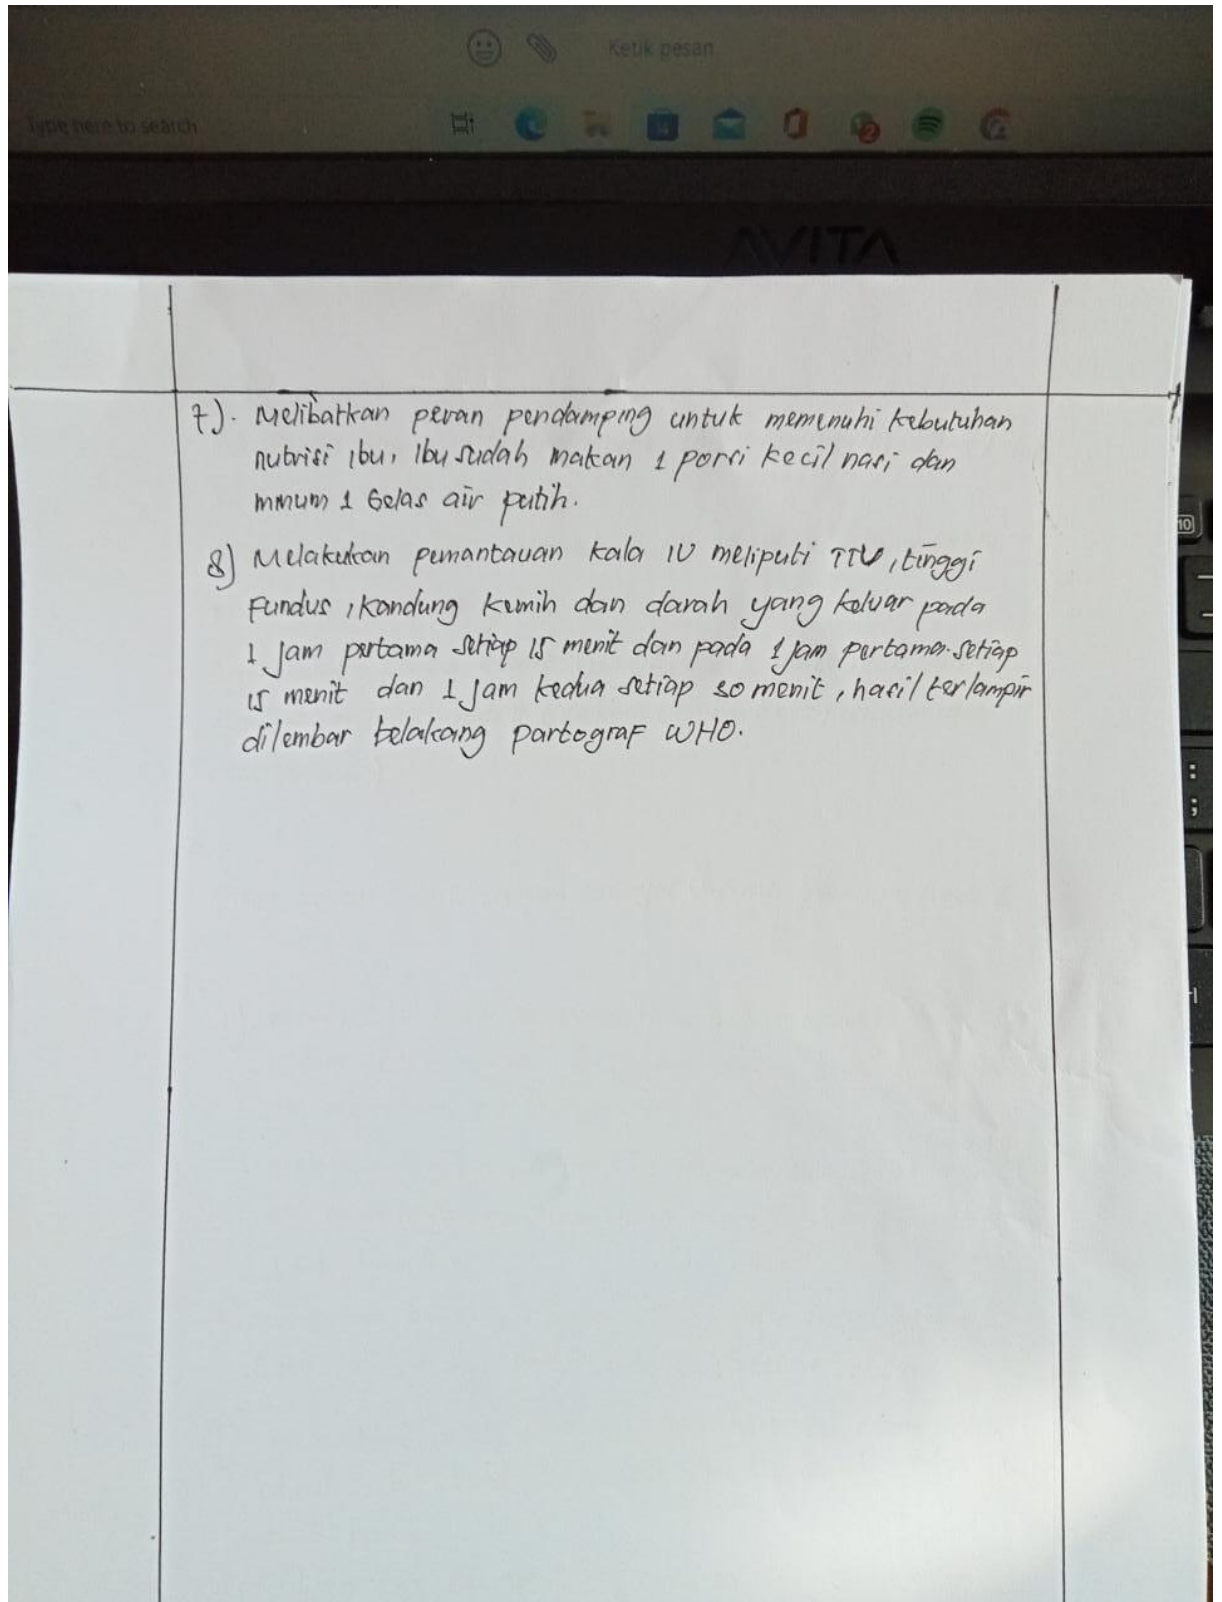 Ketik pesan
Type here to search
2
AVITA
7). Melibatkan peran pendamping untuk memenuhi kebutuhan
nutrisi ibu, Ibu sudah makan 1 porsi kecil nasi dan
mnum 1 Gelas air putih.
10
8) Melakukan pemantauan kala IV meliputi TTV, tinggi
Fundus, kandung kemih dan darah yang keluar pada
1 jam pertama setiap 15 menit dan pada 1 jam pertama. setiap
15 menit dan 1 jam kedua setiap 30 menit, hasil terlampir
dilembar belakang partograf WHO.
:
;